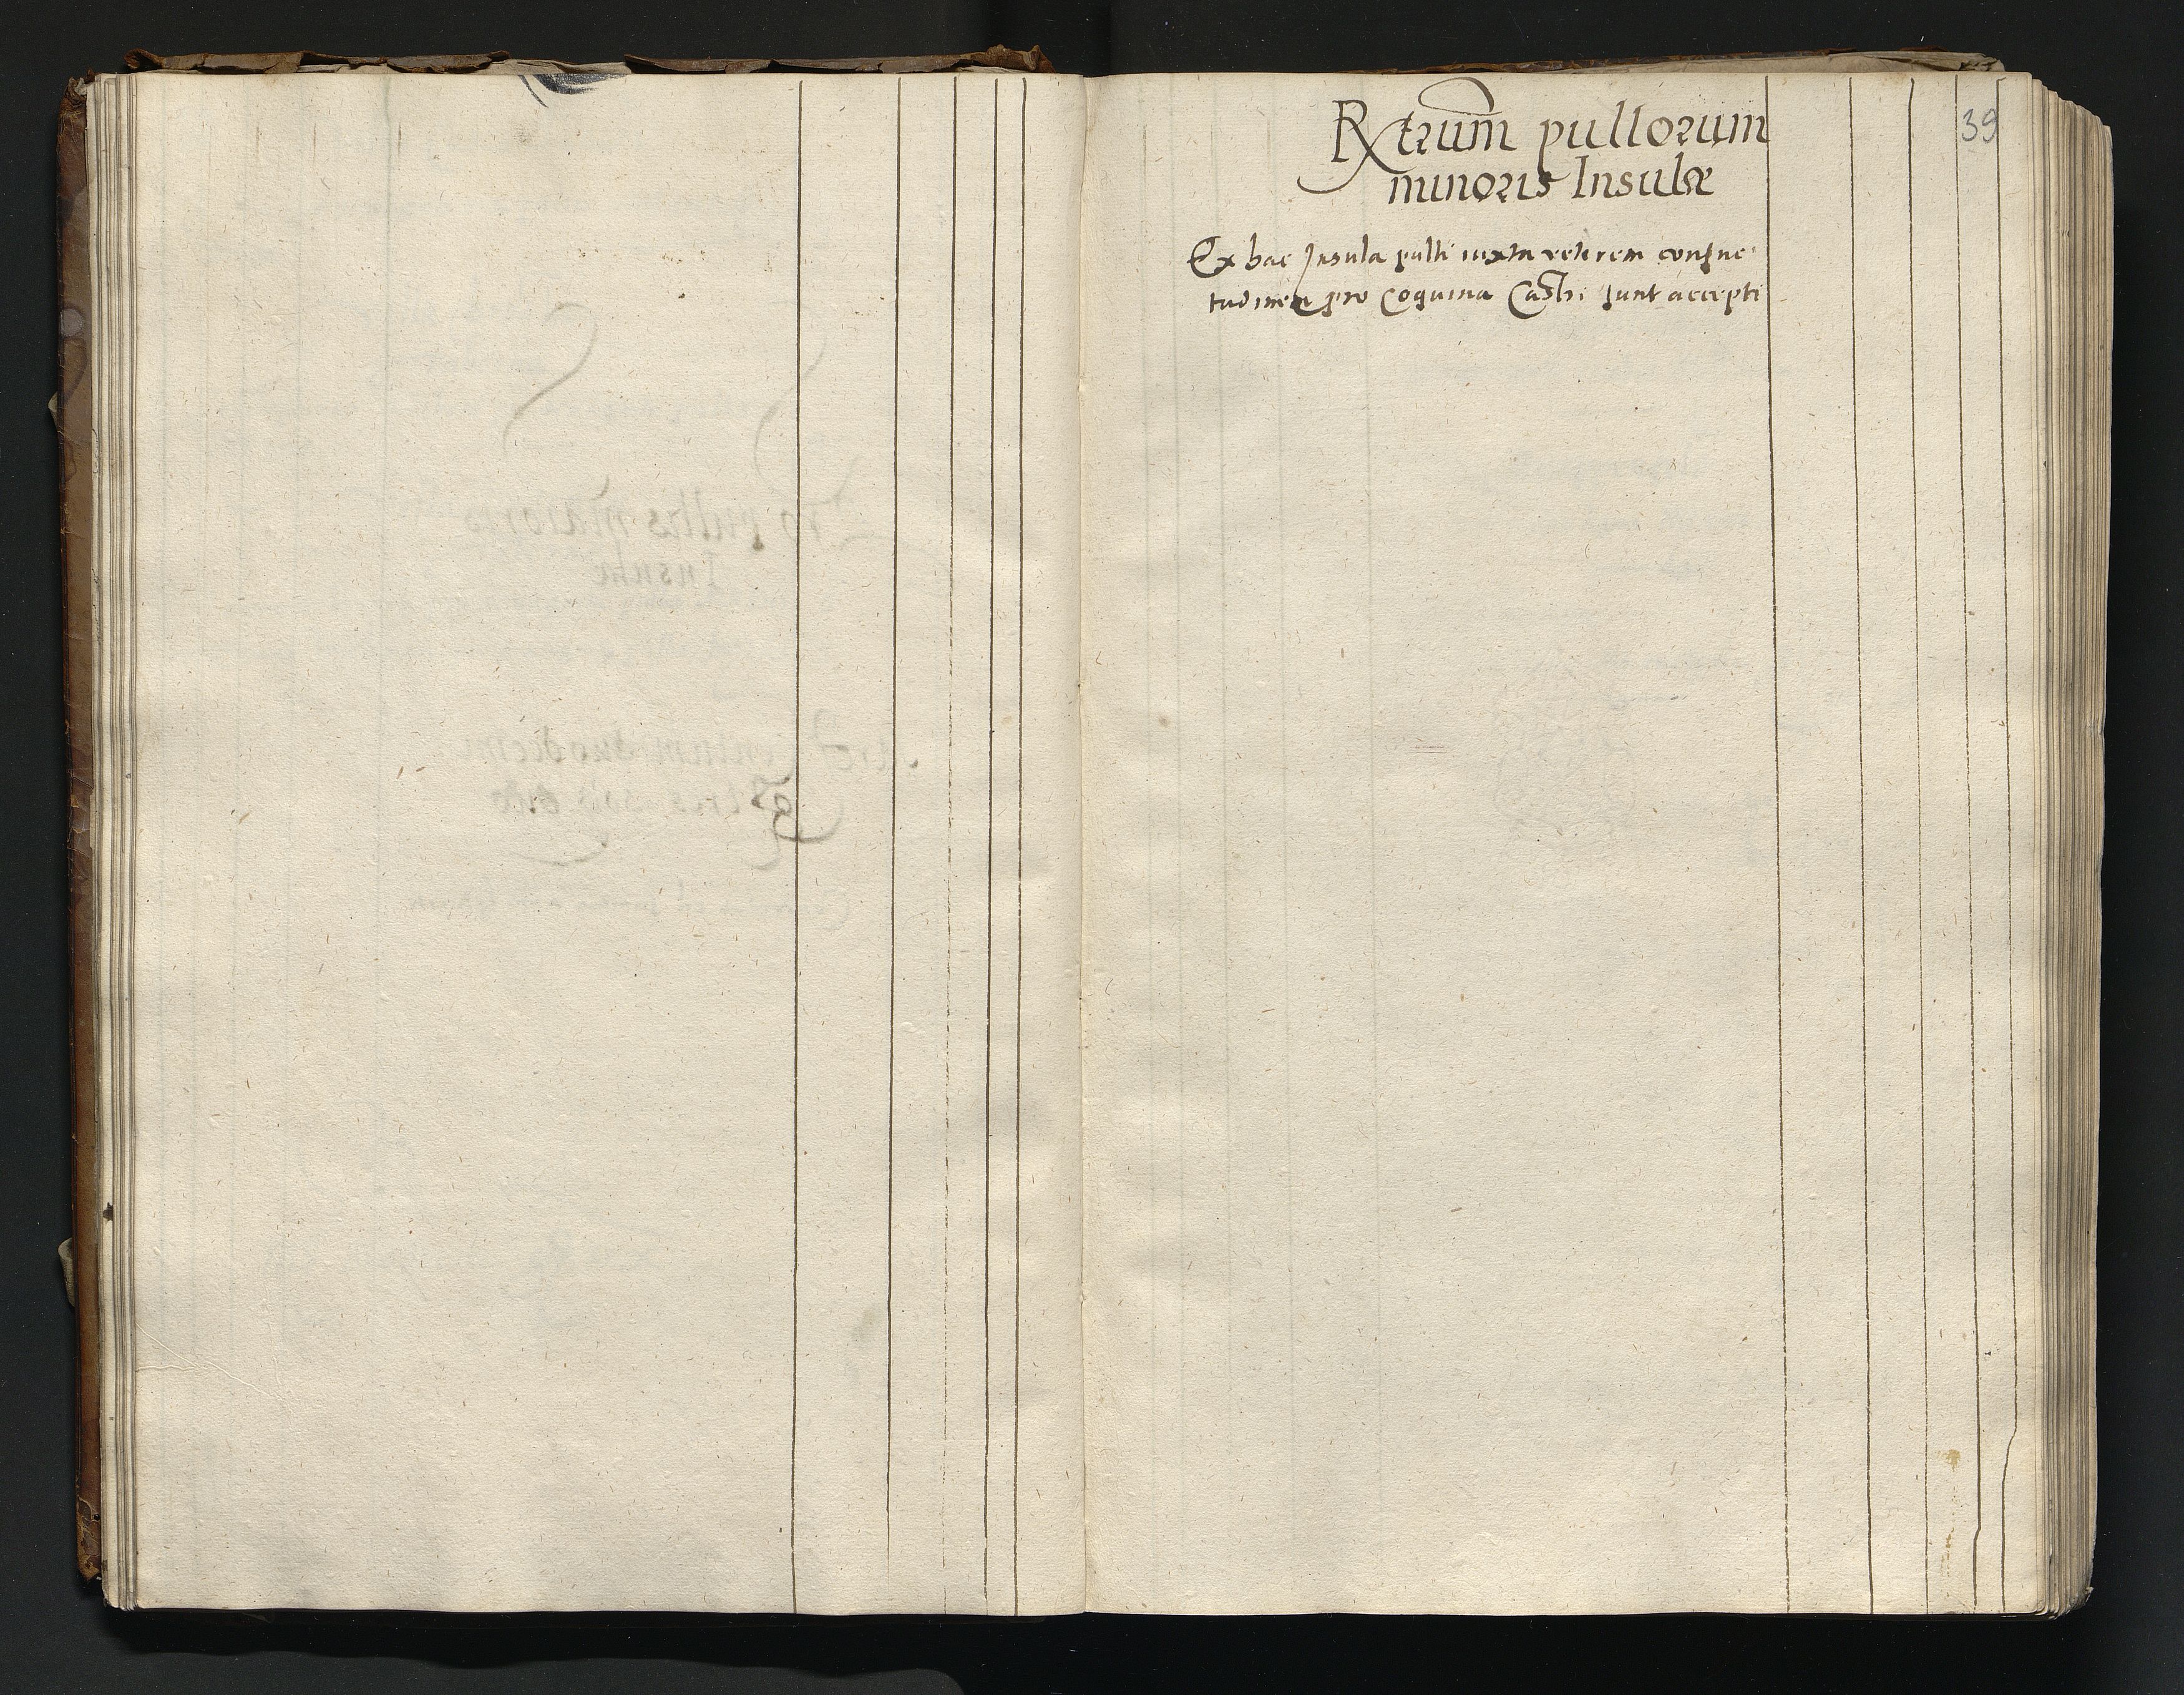 39
Rxtrum pullorum
minoris Insulæ
Ex hac Insula pulli iuxta veterem consue-
tudinem pro Coquina Castri sunt accepti